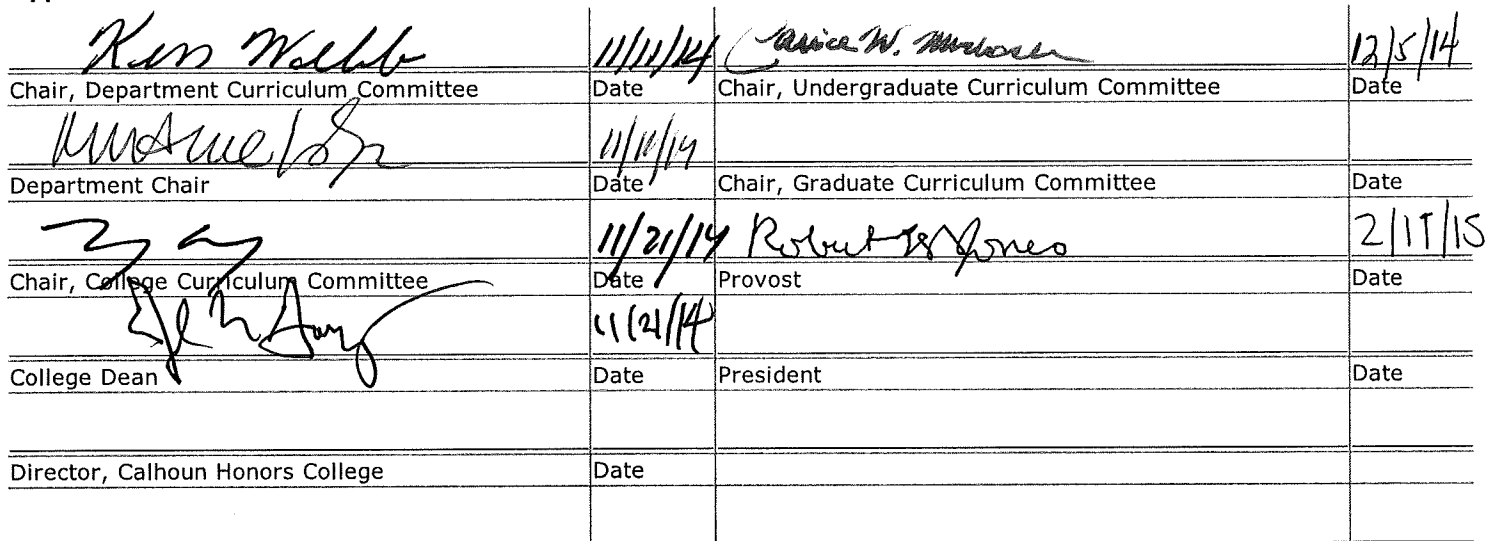 Ken Webb 11/11/14 Janice W. 12/5/14
Chair, Department Curriculum Committee Date Chair, Undergraduate Curriculum Committee Date
11/11/14
Department Chair Date Chair, Graduate Curriculum Committee Date
11/21/14 Robert H Jones 2/17/15
Chair, College Curriculum Committee Date Provost Date
11/21/14
College Dean Date President Date
Director, Calhoun Honors College Date